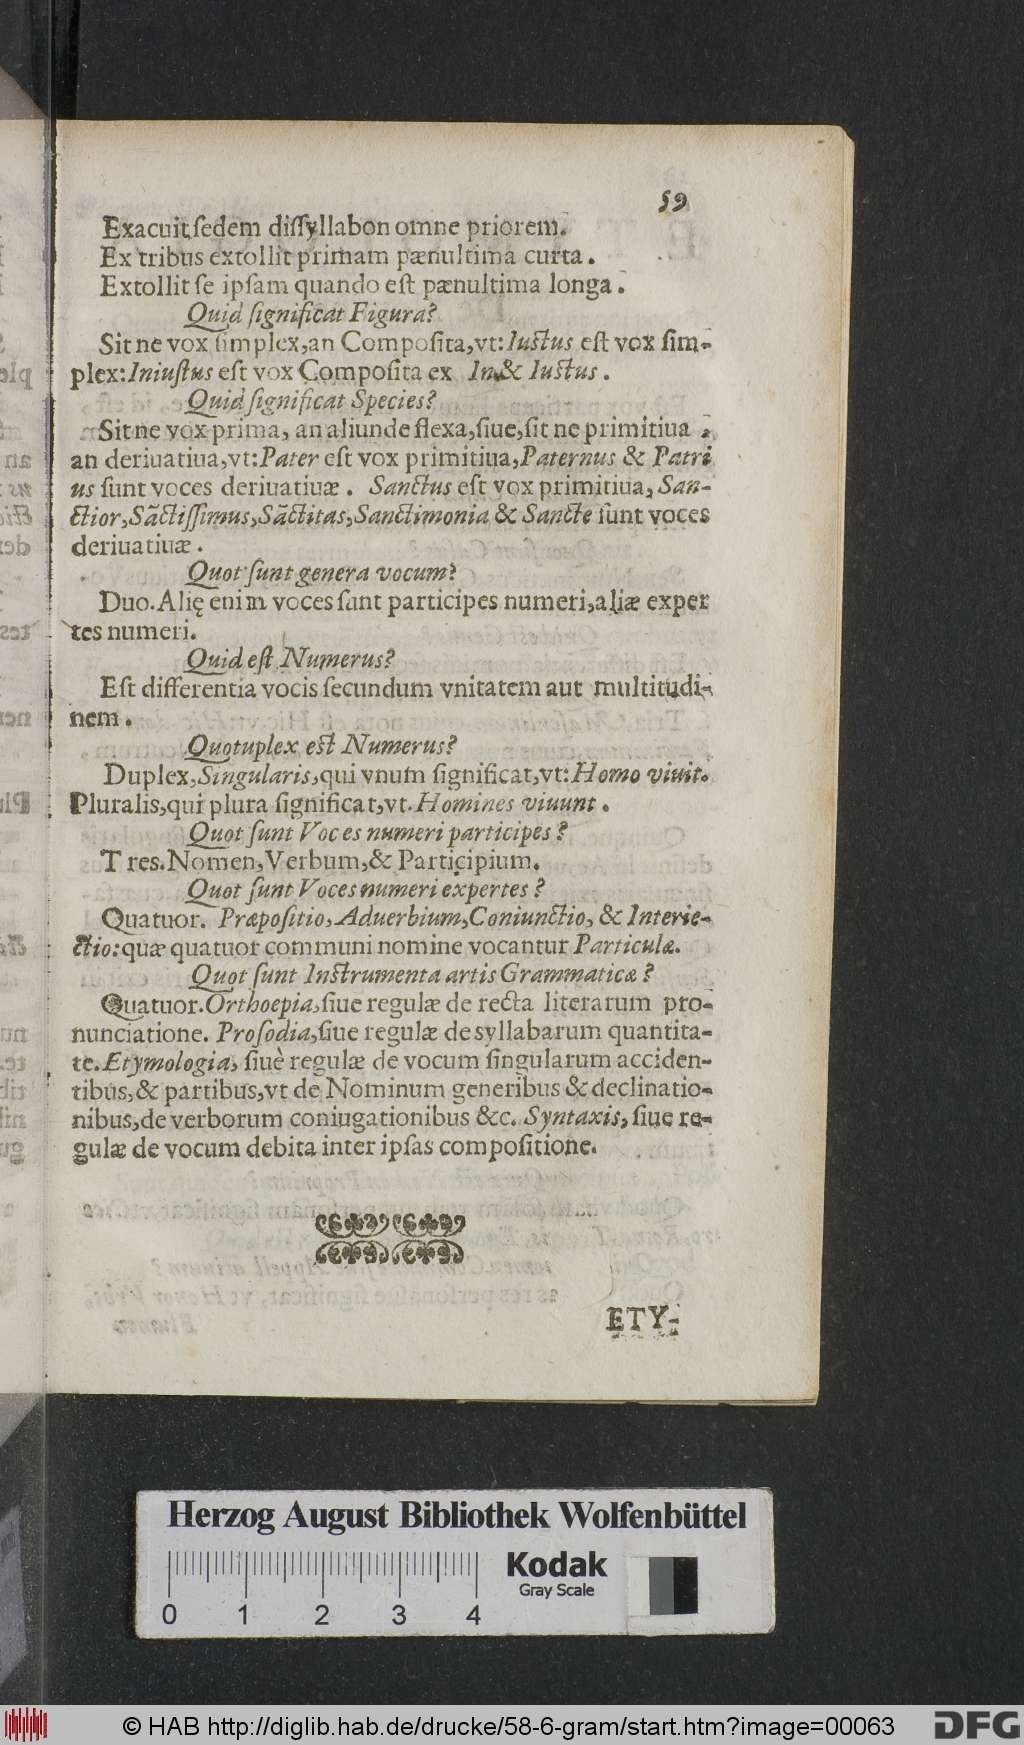 59
Exacuit sedem dissyllabon omne priorem.
Ex tribus extollit primam pænultima curta.
Extollit se ipsam quando est pænultima longa.
Quid significat Figura?
Sit ne vox simplex, an Composita, vt: Iustus est vox sim-
plex: Iniustus est vox Composita ex In & Iustus.
Quid significat Species?
Sit ne vox prima, an aliunde flexa, siue, sit ne primitiua,
an deriuatiua, vt: Pater est vox primitiua, Paternus & Patri
us sunt voces deriuatiuæ. Sanctus est vox primitiua, San-
ctior, Sãctissimus, Sãctitas, Sanctimonia & Sancte sunt voces
deriuatiuæ.
Quot sunt genera vocum?
Duo. Alię enim voces sunt participes numeri, aliæ exper
tes numeri.
Quid est Numerus?
Est differentia vocis secundum vnitatem aut multitudi-
nem.
Quotuplex est Numerus?
Duplex, Singularis, qui vnum significat, vt: Homo viuit.
Pluralis, qui plura significat, vt. Homines viuunt.
Quot sunt Voces numeri participes?
Tres. Nomen, Verbum, & Participium.
Quot sunt Voces numeri expertes?
Quatuor. Præpositio, Aduerbium, Coniunctio, & Interie-
ctio: quæ quatuor communi nomine vocantur Particulæ.
Quot sunt Instrumenta artis Grammaticæ?
Quatuor. Orthoepia, siue regulæ de recta literarum pro-
nunciatione. Prosodia, siue regulæ de syllabarum quantita-
te. Etymologia, siuè regulæ de vocum singularum acciden-
tibus, & partibus, vt de Nominum generibus & declinatio-
nibus, de verborum coniugationibus &c. Syntaxis, siue re-
gulæ de vocum debita inter ipsas compositione.
ETY-
Herzog August Bibliothek Wolfenbüttel
Kodak
Gray Scale
0 1 2 3 4
© HAB http://diglib.hab.de/drucke/58-6-gram/start.htm?image=00063
DFG